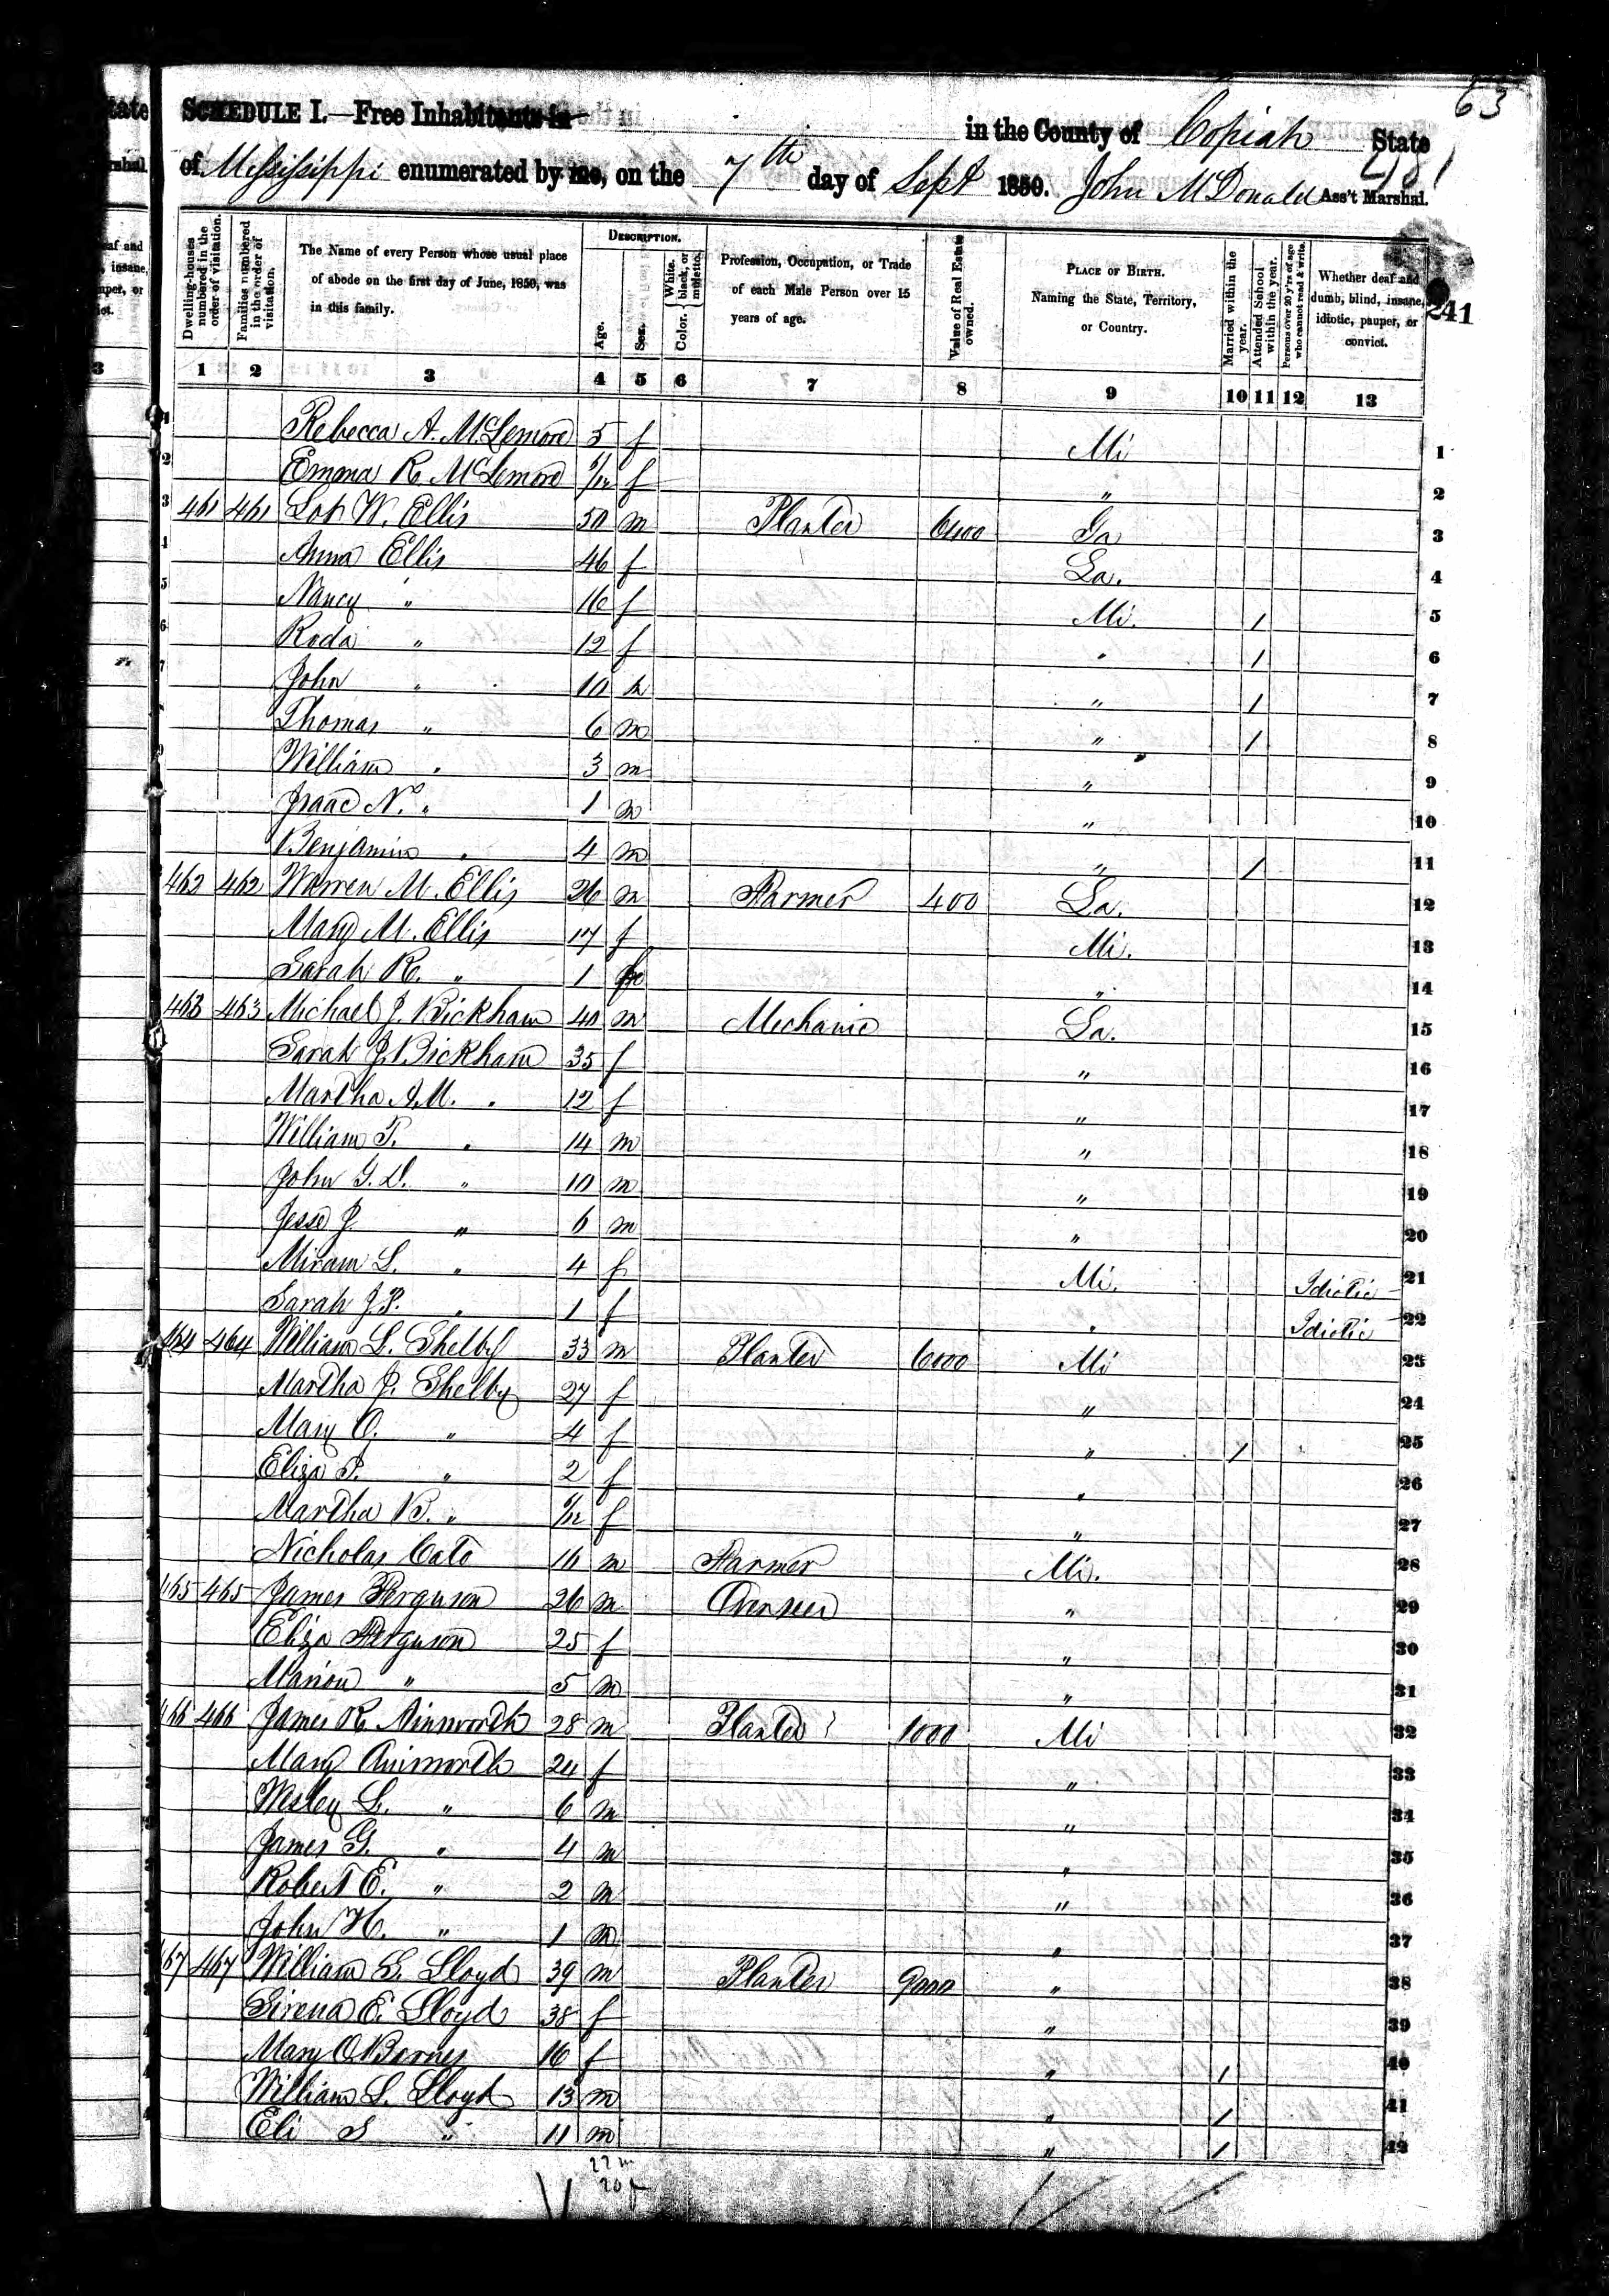 63
SCHEDULE I.—Free Inhabitants in in the County of Copiah State
of Mississippi enumerated by me, on the 7th day of Sept 1850. John McDonald Ass't Marshal.
481
241
Dwelling-houses numbered in the order of visitation.
Families numbered in the order of visitation.
The Name of every Person whose usual place of abode on the first day of June, 1850, was in this family.
DESCRIPTION.
Age.
Sex.
Color. White, black, or mulatto.
Profession, Occupation, or Trade of each Male Person over 15 years of age.
Value of Real Estate owned.
PLACE OF BIRTH. Naming the State, Territory, or Country.
Married within the year.
Attended School within the year.
Persons over 20 y'rs of age who cannot read & write.
Whether deaf and dumb, blind, insane, idiotic, pauper, or convict.
1 2 3 4 5 6 7 8 9 10 11 12 13
Rebecca A. McLemore 5 f Mi 1
Emma R. McLemore /12 f " 2
461 461 W. Ellis 50 m Planter Ga 3
Anna Ellis 46 f La. 4
Nancy " 16 f Mi. / 5
Roda " 12 f " / 6
John " 10 m " / 7
Thomas " 6 m " / 8
William " 3 m " 9
Isaac N. " 1 m " 10
Benjamin " 4 m " / 11
462 462 Warren M. Ellis 26 m Farmer 400 La. 12
Mary M. Ellis 17 f Mi. 13
Sarah R. " 1 f " 14
463 463 Michael J. Bickham 40 m Mechanic La. 15
Sarah J. Bickham 35 f " 16
Martha A.M. " 12 f " 17
William T. " 14 m " 18
John G.D. " 10 m " 19
Jesse J. " 6 m " 20
Miram L. " 4 f Mi. Idiotic 21
Sarah J.P. " 1 f " Idiotic 22
464 464 William L. Shelby 33 m Planter 6000 Mi 23
Martha J. Shelby 27 f " 24
Mary O. " 4 f " / 25
Eliza P. " 2 f " 26
Martha B. " /12 f " 27
Nicholas Cato 16 m Farmer Mi. 28
465 465 James Ferguson 26 m Overseer " 29
Eliza Ferguson 25 f " 30
Marion " 5 m " 31
466 466 James R. Ainsworth 28 m Planter 1000 Mi 32
Mary Ainsworth 24 f " 33
Wesley L. " 6 m " 34
James G. " 4 m " 35
Robert E. " 2 m " 36
John H. " 1 m " 37
467 467 William S. Lloyd 39 m Planter 9000 " 38
Sirena E. Lloyd 38 f " 39
Mary O Barnes 16 f " / 40
William L. Lloyd 13 m " / 41
Eli S " 11 m " / 42
22 m
20 f